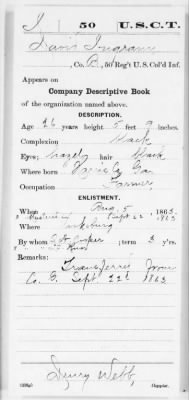 I 50 U.S.C.T.
Ingram
, Co. B, 50 Reg't U. S. Col'd Inf.
Appears on
Company Descriptive Book
of the organization named above.
DESCRIPTION.
Age 26 years; height 5 feet 9 inches.
Complexion Black
Eyes; hazely hair Black
Where born Ga
Occupation Farmer
ENLISTMENT.
When Aug. 5, 1863.
Sept 22 1863
Where Vicksburg
By whom ; term 3 y'rs.
Remarks:
Transferred from
Co. Sept. 22d 1863
Henry Webb,
Copyist.